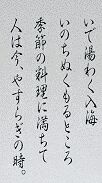 いで湯わく入海
いのちぬくもるところ
季節の料理に満ちて
人は今、やすらぎの時。